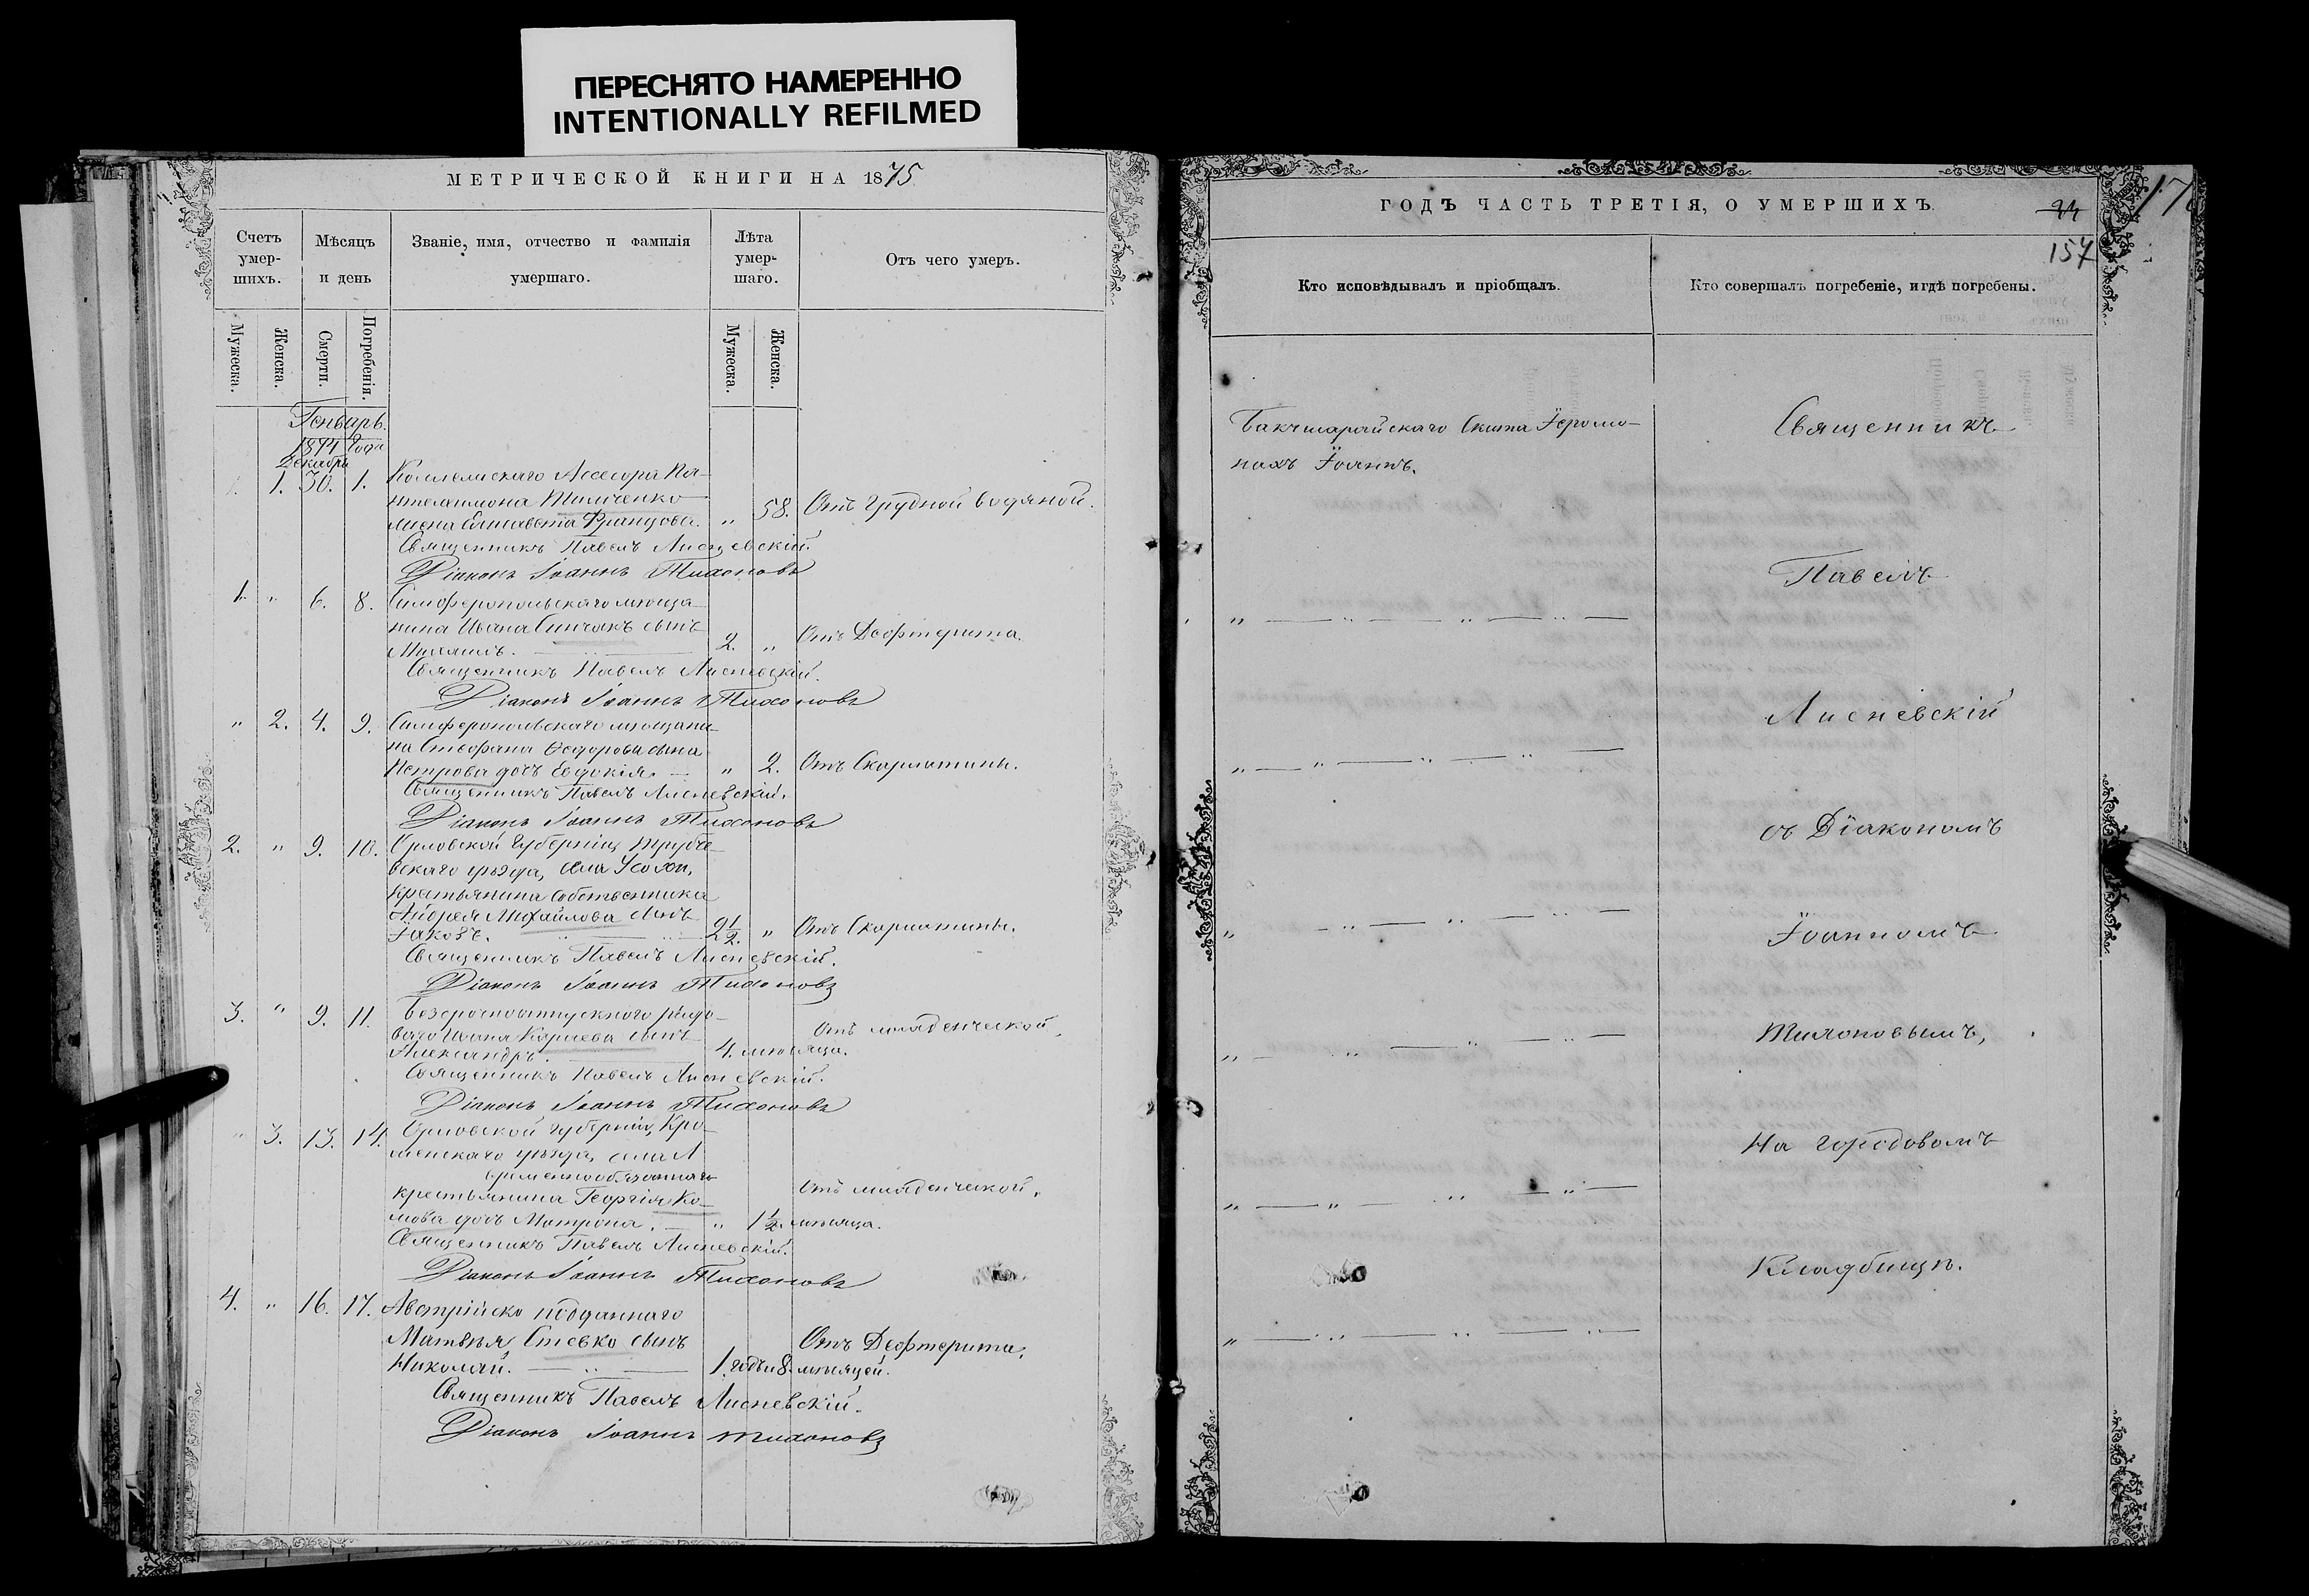 ПЕРЕСНЯТО НАМЕРЕННО
INTENTIONALLY REFILMED
МЕТРИЧЕСКОЙ КНИГИ НА 1875
Счетъ умер-шихъ.
Мѣсяцъ и день
Званіе, имя, отчество и фамилія умершаго.
Лѣта умер-шаго.
Отъ чего умеръ.
Мужеска.
Женска.
Смерти.
Погребенія.
Мужеска.
Женска.
Генварь.
1874 года
Декабря
1. 30. 1. Коллежскаго Ассесора Пан-
телеимона Тимченко
жена Елисавета Францова. " 58. Отъ грудной водяной.
Священникъ Павелъ Лисневскій.
Діаконъ Іоаннъ Тихоновъ
1. " 6. 8. Симферопольскаго мѣща-
нина Ивана Синчакъ сынъ
Михаилъ. 2. " Отъ Дефтерита.
Священникъ Павелъ Лисневскій.
Діаконъ Іоаннъ Тихоновъ
" 2. 4. 9. Симферопольскаго мѣщани-
на Стефана Ѳедорова сына
Петрова дочь Евдокія. " 2. Отъ Скарлатины.
Священникъ Павелъ Лисневскій.
Діаконъ Іоаннъ Тихоновъ
2. " 9. 10. Орловской Губерніи, Трубче-
вскаго уѣзда, села
крестьянина собственника
Андрея Михайлова сынъ
Іаковъ. 2½. " Отъ Скарлатины.
Священникъ Павелъ Лисневскій.
Діаконъ Іоаннъ Тихоновъ
3. " 9. 11. Безсрочноотпускного рядо-
ваго Ивана Карпева сынъ Отъ младенческой.
Александръ. 4. мѣсяца.
Священникъ Павелъ Лисневскій.
Діаконъ Іоаннъ Тихоновъ
" 3. 13. 14. Орловской губерніи, Кро-
менскаго уѣзда, села
временнообязаннаго
крестьянина Георгія Ко- Отъ младенческой.
мова дочь Матрона. " 1½. мѣсяца.
Священникъ Павелъ Лисневскій.
Діаконъ Іоаннъ Тихоновъ
4. " 16. 17. Австрійско подданнаго
Матвѣя Стевко сынъ Отъ Дефтерита.
Николай. 1. годъ и 8. мѣсяцей.
Священникъ Павелъ Лисневскій.
Діаконъ Іоаннъ Тихоновъ
ГОДЪ ЧАСТЬ ТРЕТІЯ, О УМЕРШИХЪ.
157
Кто исповѣдывалъ и пріобщалъ.
Кто совершалъ погребеніе, и гдѣ погребены.
Бакчисарайскаго Скита Іеромо-
нахъ Іоаннъ.
Священникъ
Павелъ
Лисневскій
съ Діакономъ
Іоанномъ
Тихоновымъ,
На городовомъ
Кладбищѣ.